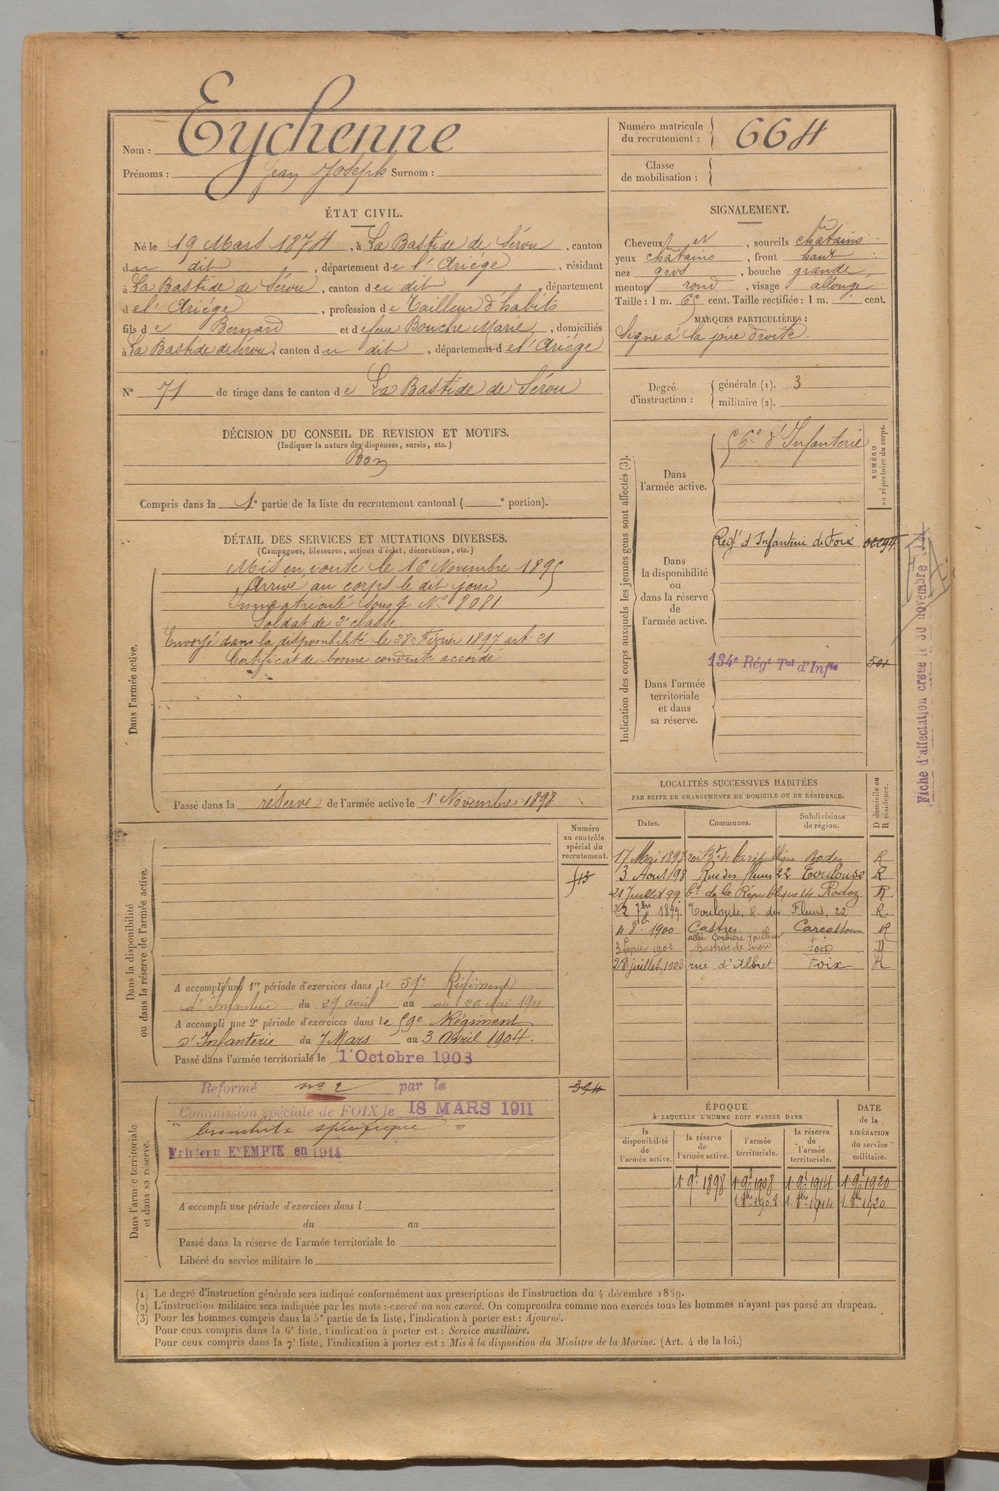 Nom : Eychenne
Prénoms : Jean Joseph Surnom :
Numéro matricule du recrutement : 664
Classe de mobilisation :
ÉTAT CIVIL.
Né le 19 Mars 1874, à La Bastide de Sérou, canton
du dit, département de l'Ariége, résidant
à La Bastide de Sérou, canton du dit, département
de l'Ariége, profession de Tailleur d'habits
fils de Bernard et de feue Bouche Marie, domiciliés
à La Bastide de Sérou, canton du dit, département de l'Ariége
N° 71 de tirage dans le canton de La Bastide de Sérou
SIGNALEMENT.
Cheveux et, sourcils chatains
yeux chatains, front haut
nez gros, bouche grande
menton rond, visage allongé
Taille : 1 m. 65 cent. Taille rectifiée : 1 m. cent.
MARQUES PARTICULIÈRES :
Signe à la joue droite.
Degré d'instruction :
générale (1). 3
militaire (2).
DÉCISION DU CONSEIL DE REVISION ET MOTIFS.
(Indiquer la nature des dispenses, sursis, etc.)
Bon
Compris dans la 1e partie de la liste du recrutement cantonal ( e portion).
DÉTAIL DES SERVICES ET MUTATIONS DIVERSES.
(Campagnes, blessures, actions d'éclat, décorations, etc.)
Dans l'armée active.
Mis en route le 16 Novembre 1895
Arrivé au corps le dit jour
Immatriculé sous le N° 8081
Soldat de 2e classe
Envoyé dans la disponibilité le 28 Février 1897 art. 21
Certificat de bonne conduite accordé
Passé dans la réserve de l'armée active le 1er Novembre 1898
Indication des corps auxquels les jeunes gens sont affectés (3).
NUMÉRO au répertoire du corps.
Dans l'armée active.
56e d'Infanterie
Dans la disponibilité ou dans la réserve de l'armée active.
Regt d'Infanterie de Foix
Dans l'armée territoriale et dans sa réserve.
134e Régt Tal d'Infie
Fiche d'affectation créée le 30 novembre
LOCALITÉS SUCCESSIVES HABITÉES
PAR SUITE DE CHANGEMENTS DE DOMICILE OU DE RÉSIDENCE.
D domicile ou R résidence.
Dates. Communes. Subdivisions de région.
17 Mai 1897 Bd de la république Rodez R
3 Aout 98 Rue des fleurs 22 Toulouse R
21 Juillet 99 Bd de la République 14 Rodez R
22 7bre 1899 Toulouse, R. des Fleurs, 22 R
4 8bre 1900 Castres Carcassonne R
3 février 1903 Bastide de Sérou Foix D
28 juillet 1903 rue d'Albret Foix R
Numéro au contrôle spécial du recrutement.
Dans la disponibilité ou dans la réserve de l'armée active.
A accompli une 1re période d'exercices dans le 59e Régiment
d'Infanterie du 29 avril au 26 mai 1901
A accompli une 2e période d'exercices dans le 59e Régiment
d'Infanterie du 7 Mars au 3 Avril 1904.
Passé dans l'armée territoriale le 1er Octobre 1908
Dans l'armée territoriale et dans sa réserve.
Reformé n° 2 par la
Commission spéciale de FOIX le 18 MARS 1911
" bronchite spécifique "
Maintenu EXEMPTÉ en 1914
A accompli une période d'exercices dans l
du au
Passé dans la réserve de l'armée territoriale le
Libéré du service militaire le
ÉPOQUE
À LAQUELLE L'HOMME DOIT PASSER DANS
DATE de la LIBÉRATION du service militaire.
la disponibilité de l'armée active. la réserve de l'armée active. l'armée territoriale. la réserve de l'armée territoriale.
1er 9bre 1898 1er 9bre 1908 1er 9bre 1914 1er 9bre 1920
1 8bre 1908 1 8bre 1914 1 8bre 1920
(1) Le degré d'instruction générale sera indiqué conformément aux prescriptions de l'instruction du 4 décembre 1889.
(2) L'instruction militaire sera indiquée par les mots : exercé ou non exercé. On comprendra comme non exercés tous les hommes n'ayant pas passé au drapeau.
(3) Pour les hommes compris dans la 5e partie de la liste, l'indication à porter est : Ajourné.
Pour ceux compris dans la 6e liste, l'indication à porter est : Service auxiliaire.
Pour ceux compris dans la 7e liste, l'indication à porter est : Mis à la disposition du Ministre de la Marine. (Art. 4 de la loi.)